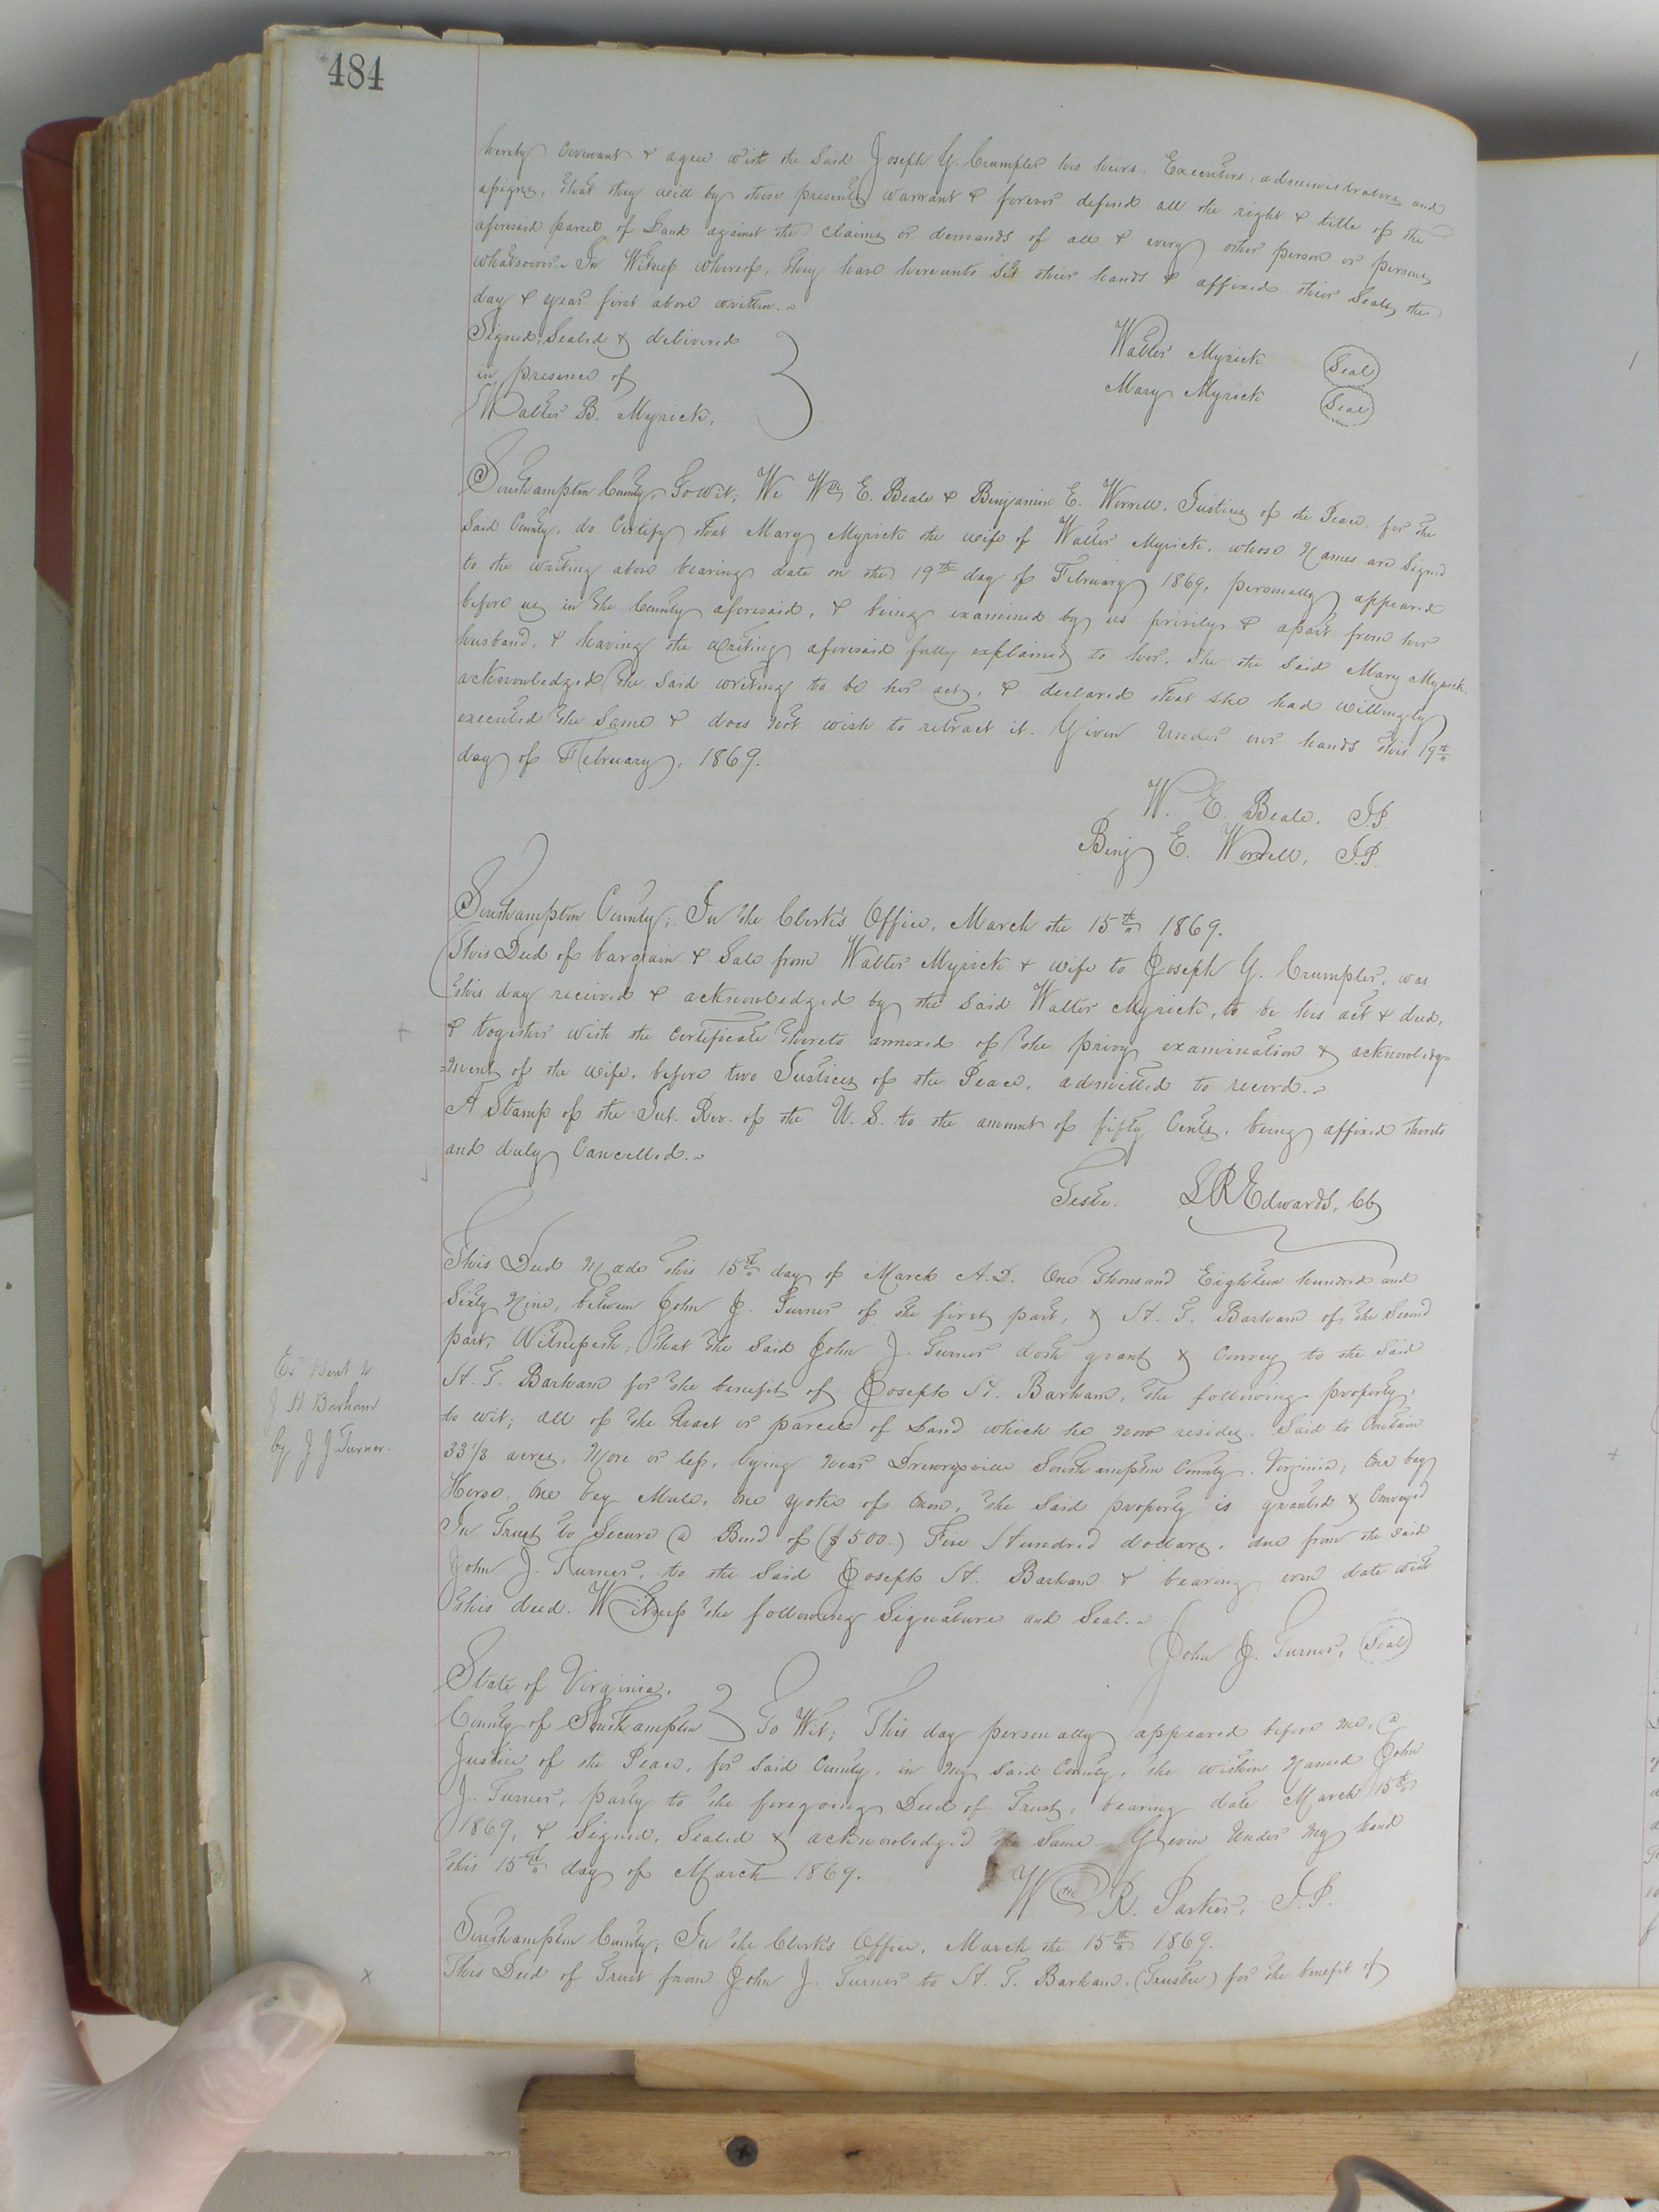 484
hereby covenant & agree with the Said Joseph G. Crumpler his heirs, Executors, administrators and
assigns, that they will by these presents warrant & forever defend all the right & title of the
aforesaid parcel of Land against the claims or demands of all & every other person or persons
whatsoever. In Witness whereof, they have hereunto Set their hands & affixed their Seals, the
day & year first above written.
Signed, Sealed & delivered
in presence of
Walter B. Myrick.
Walter Myrick (Seal)
Mary Myrick (Seal)
Southampton County, To wit; We Wm E. Beale & Benjamin E. Worrell, Justices of the Peace, for the
Said County, do Certify that Mary Myrick the wife of Walter Myrick, whose Names are Signed
to the writing above bearing date on the 19th day of February 1869, personally appeared
before us in the County aforesaid, & being examined by us privily & apart from her
husband, & having the writing aforesaid fully explained to her, She the Said Mary Myrick
acknowledged the Said writing to be her act, & declared that She had willingly
executed the Same & does not wish to retract it. Given Under our hands this 19th
day of February, 1869.
W. E. Beale, J.P.
Benj E. Worrell, J.P.
Southampton County; In the Clerk's Office, March the 15th 1869.
This Deed of bargain & Sale from Walter Myrick & wife to Joseph G. Crumpler, was
this day recieved & acknowledged by the Said Walter Myrick, to be his act & deed,
& together with the Certificate thereto annexed of the privy examination & acknowledg=
=ment of the wife, before two Justices of the Peace, admitted to record.
A Stamp of the Int. Rev. of the U. S. to the amount of fifty Cents, being affixed thereto
and duly Cancelled.
Teste. L R Edwards, CC
This Deed Made this 15th day of March A.D. One Thousand Eighteen hundred and
Sixty Nine, between John J. Turner of the first part, & H. T. Barham of the Second
part, Witnesseth; That the Said John J. Turner doth grant & Convey to the Said
H. T. Barham for the benefit of Joseph H. Barham, the following property,
to wit; all of the Tract or parcel of Land which he now resides, Said to Contain
33 1/3 acres, More or less, lying near Drewrysville Southampton County, Virginia; One bay
Horse, One bay Mule, One yoke of Oxen, the Said property is granted & Conveyed
In Trust to Secure a Bond of ($500.) Five Hundred dollars, due from the Said
John J. Turner, to the Said Joseph H. Barham & bearing even date with
this deed. Witness the following Signature and Seal.
John J. Turner, (Seal)
J H Barham
by J J Turner.
State of Virginia,
County of Southampton To Wit; This day personally appeared before me, a
Justice of the Peace, for Said County, in my Said County, the within Named John
J. Turner, party to the foregoing Deed of Trust, bearing date March 15th
1869, & Signed, Sealed & acknowledged the Same Given Under my hand
this 15th day of March 1869.
Wm R. Parker, J.P.
Southampton County; In the Clerk's Office, March the 15th 1869.
This Deed of Trust from John J. Turner to H. T. Barham, (Trustee) for the benefit of